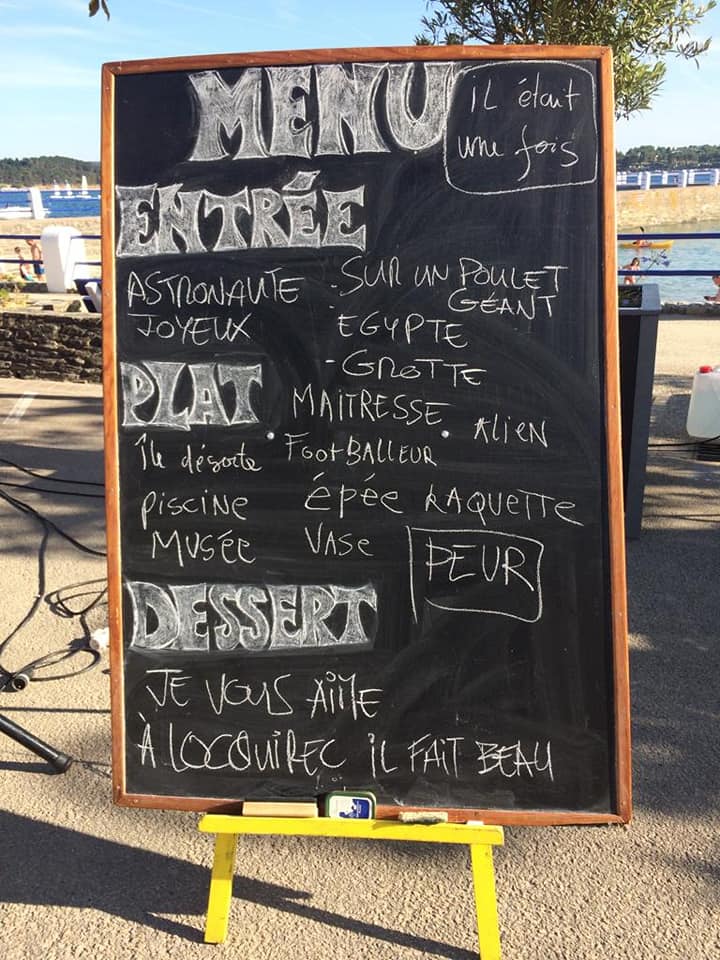 MENU
iL était
une fois
ENTRÉE
ASTRONAUTE
JOYEUX
- SUR UN POULET
GÉANT
EGYPTE
- GROTTE
PLAT
MAITRESSE
ALiEN
Île déserte
FootBALLEUR
piscine
épée
RAQUETTE
Musée
VASE
PEUR
DESSERT
JE VOUS AiME
À LOCQUIREC iL FAIT BEAU